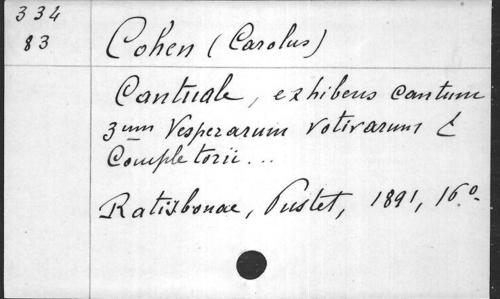 334
83
Cohen (Carolus)
Cantuale, exhibens cantum
3um Vesperarum votivarum &
Completorii...
Ratisbonae, Pustet, 1891, 16º.